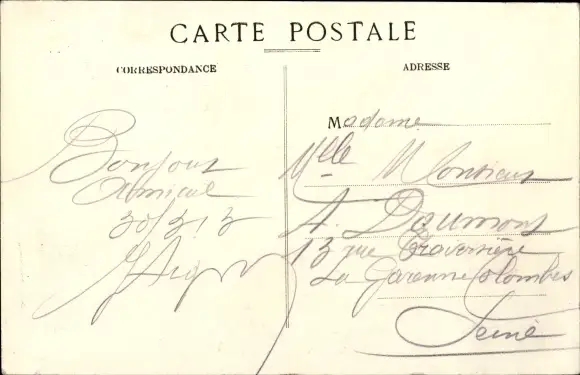 CARTE POSTALE
CORRESPONDANCE
ADRESSE
Bonjour
Amical
30/3 13
Madame
Mlle Monsieur
A. Daumont
13 rue Traversière
La Garenne Colombes
Seine